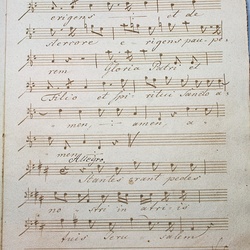 erigens et de
stercore erigens paupe-
rem Gloria Patri et
Filio et Spiritui Sancto a-
men, amen a-
men. Allegro
Stantes erant pedes
nostri in atriis
tuis Jeru salem